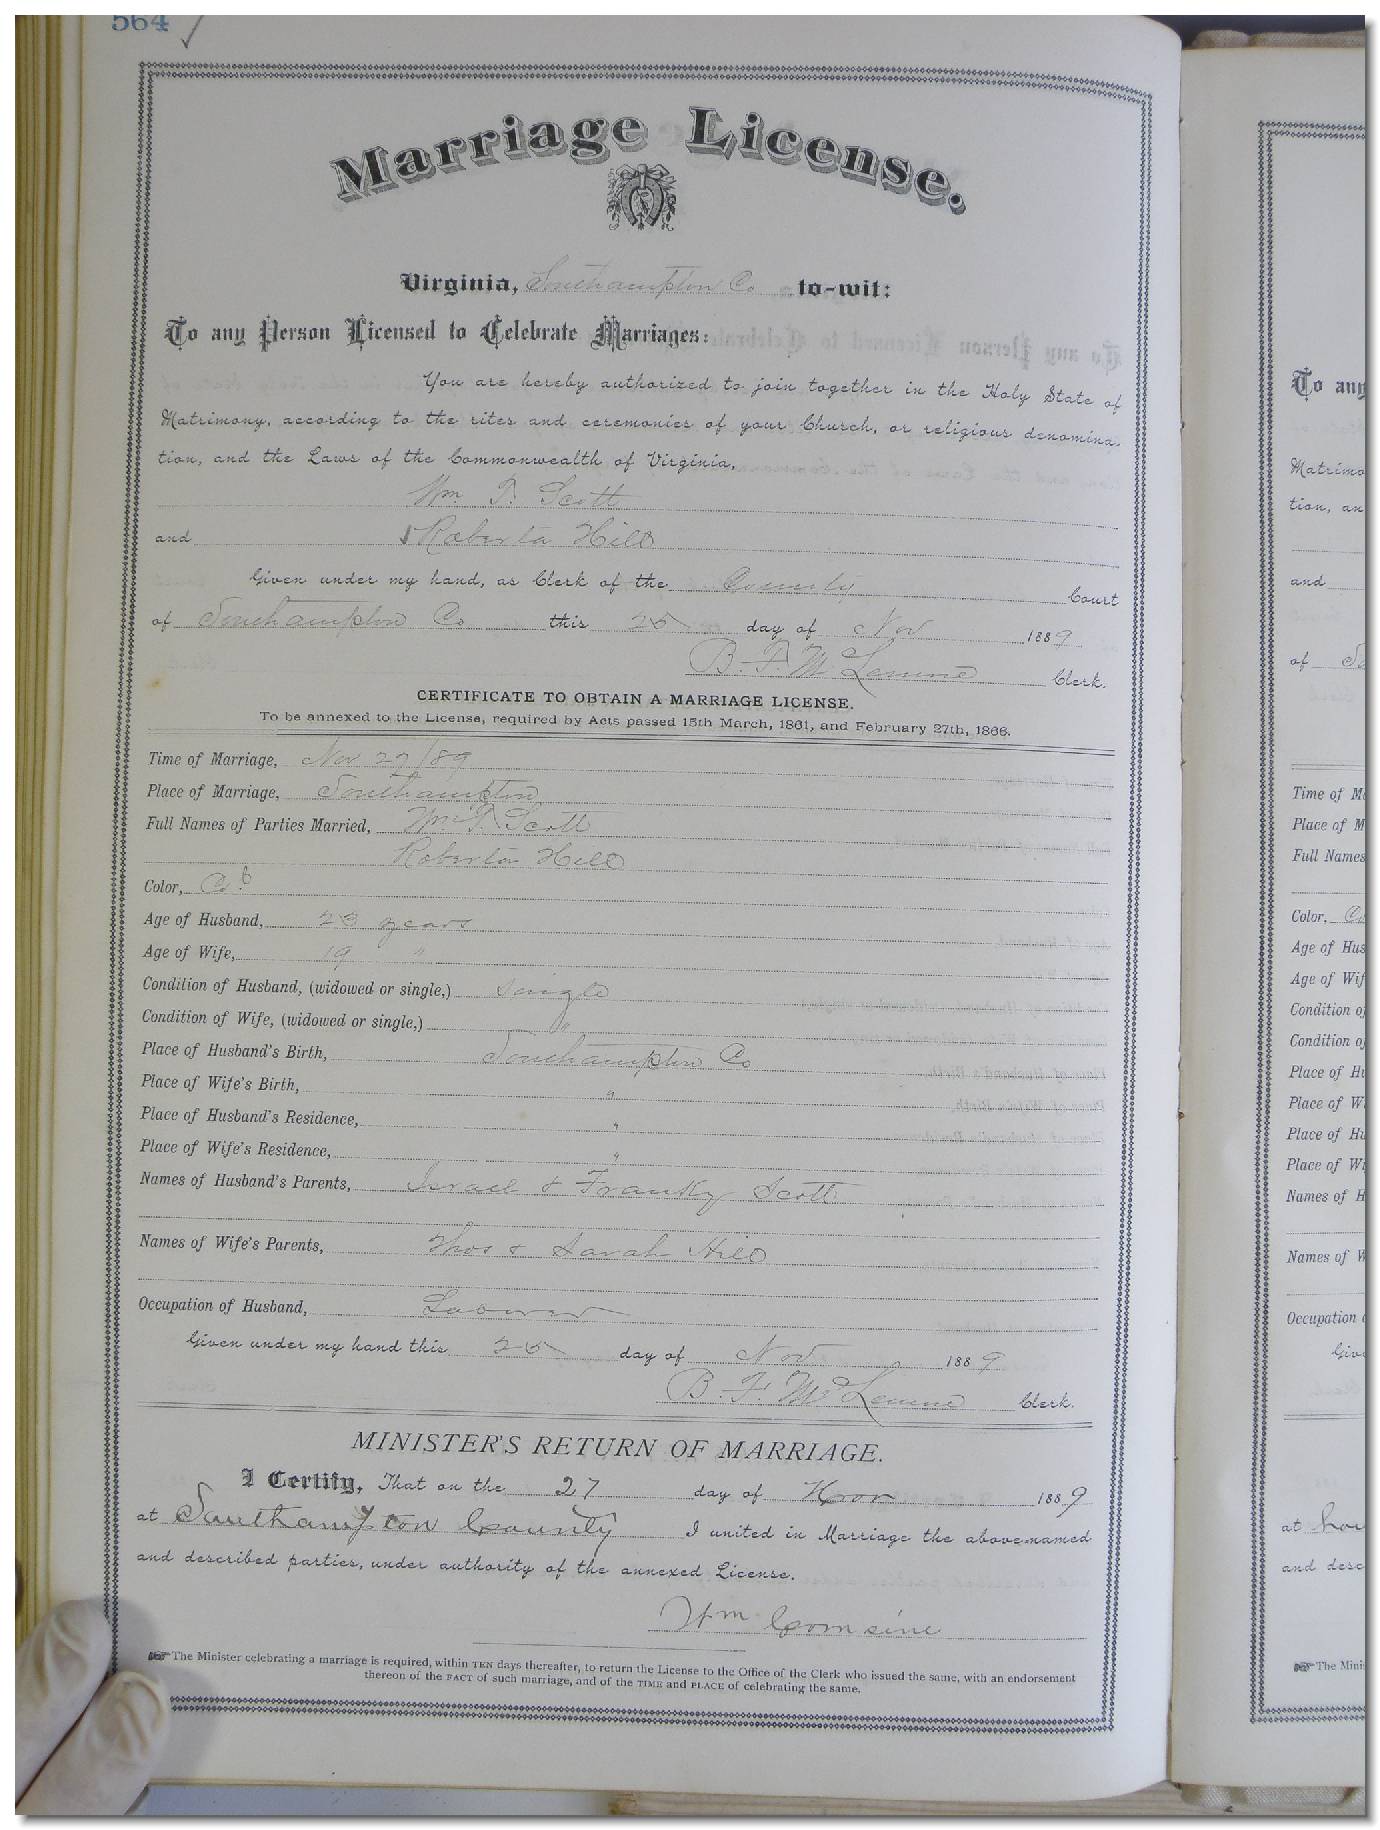 564
Marriage License.
Virginia, Southampton Co to-wit:
To any Person Licensed to Celebrate Marriages:
You are hereby authorized to join together in the Holy State of
Matrimony, according to the rites and ceremonies of your Church, or religious denomina-
tion, and the Laws of the Commonwealth of Virginia,
Wm. T. Scott
and Roberta Hill
Given under my hand, as Clerk of the County Court
of Southampton Co this 25 day of Nov 1889
B. F. McLemore Clerk.
CERTIFICATE TO OBTAIN A MARRIAGE LICENSE.
To be annexed to the License, required by Acts passed 15th March, 1861, and February 27th, 1866.
Time of Marriage, Nov 27/89
Place of Marriage, Southampton
Full Names of Parties Married, Wm T. Scott
Roberta Hill
Color, Cod
Age of Husband, 23 years
Age of Wife, 19 "
Condition of Husband, (widowed or single,) Single
Condition of Wife, (widowed or single,) "
Place of Husband's Birth, Southampton Co
Place of Wife's Birth, "
Place of Husband's Residence, "
Place of Wife's Residence, "
Names of Husband's Parents, Israel & Franky Scott
Names of Wife's Parents, Thos & Sarah Hill
Occupation of Husband, Laborer
Given under my hand this 25 day of Nov 1889
B. F. McLemore Clerk.
MINISTER'S RETURN OF MARRIAGE.
I Certify, That on the 27 day of Nov 1889
at Southampton County I united in Marriage the above-named
and described parties, under authority of the annexed License.
Wm
The Minister celebrating a marriage is required, within TEN days thereafter, to return the License to the Office of the Clerk who issued the same, with an endorsement
thereon of the FACT of such marriage, and of the TIME and PLACE of celebrating the same.
To any
Matrimo
tion, an
and
of
Time of M
Place of M
Full Names
Color, Co
Age of Hus
Age of Wif
Condition o
Condition o
Place of Hu
Place of W
Place of Hu
Place of Wi
Names of H
Names of W
Occupation
Giv
at
and desc
The Mini